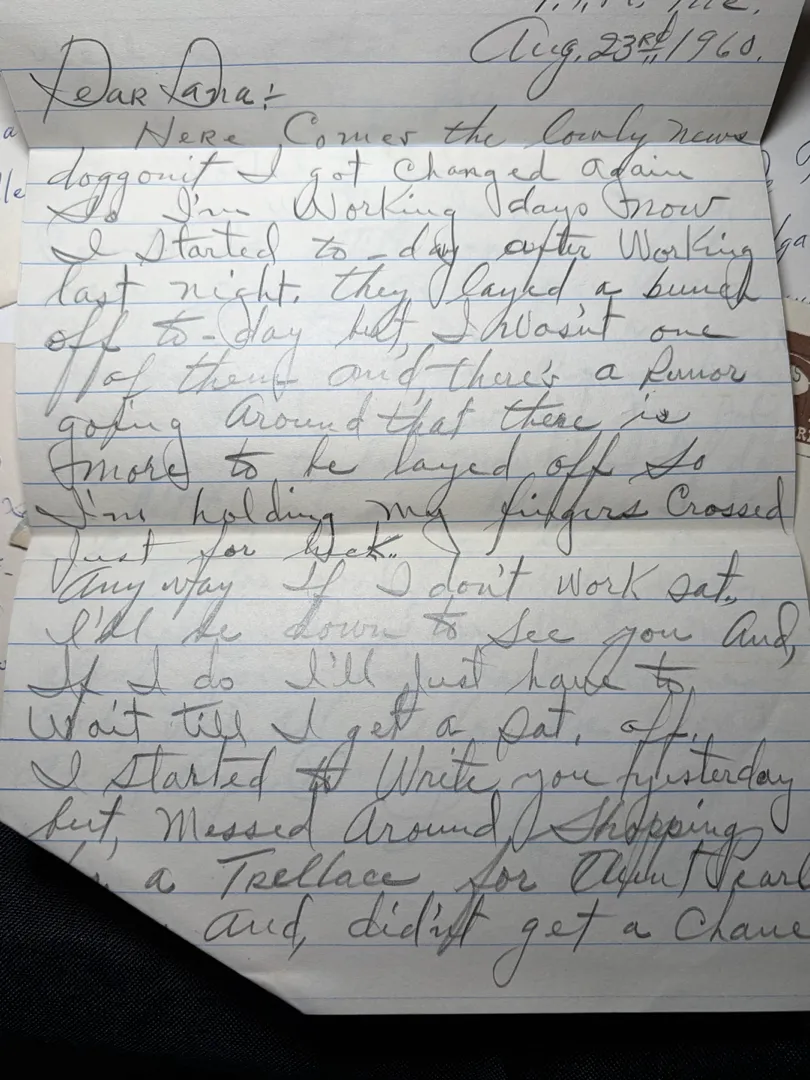 Aug. 23RD, 1960.
Dear Lana:-
Here Comes the lowly news
doggonit I got changed again
So I'm Working days now
I started to-day after Working
last night. they layed a bunch
off to-day but, I wasn't one
of them and, there's a Rumor
going around that there is
more to be layed off So
I'm holding my fingers Crossed
Just for luck..
Any way If I don't work sat.
I'll be down to see you And,
If I do I'll Just have to
Wait till I get a sat. off.
I started to Write you yesterday
but, Messed Around Shopping
a Trellace for Aunt Pearl
And, didn't get a Chance